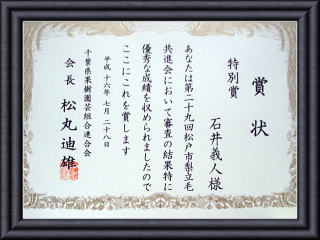 賞状
特別賞
石井義人様
あなたは第二十九回松戸市梨立毛
共進会において審査の結果特に
優秀な成績を収められましたので
ここにこれを賞します
平成十六年七月二十八日
千葉県果樹園芸組合連合会
会長 松丸迪雄